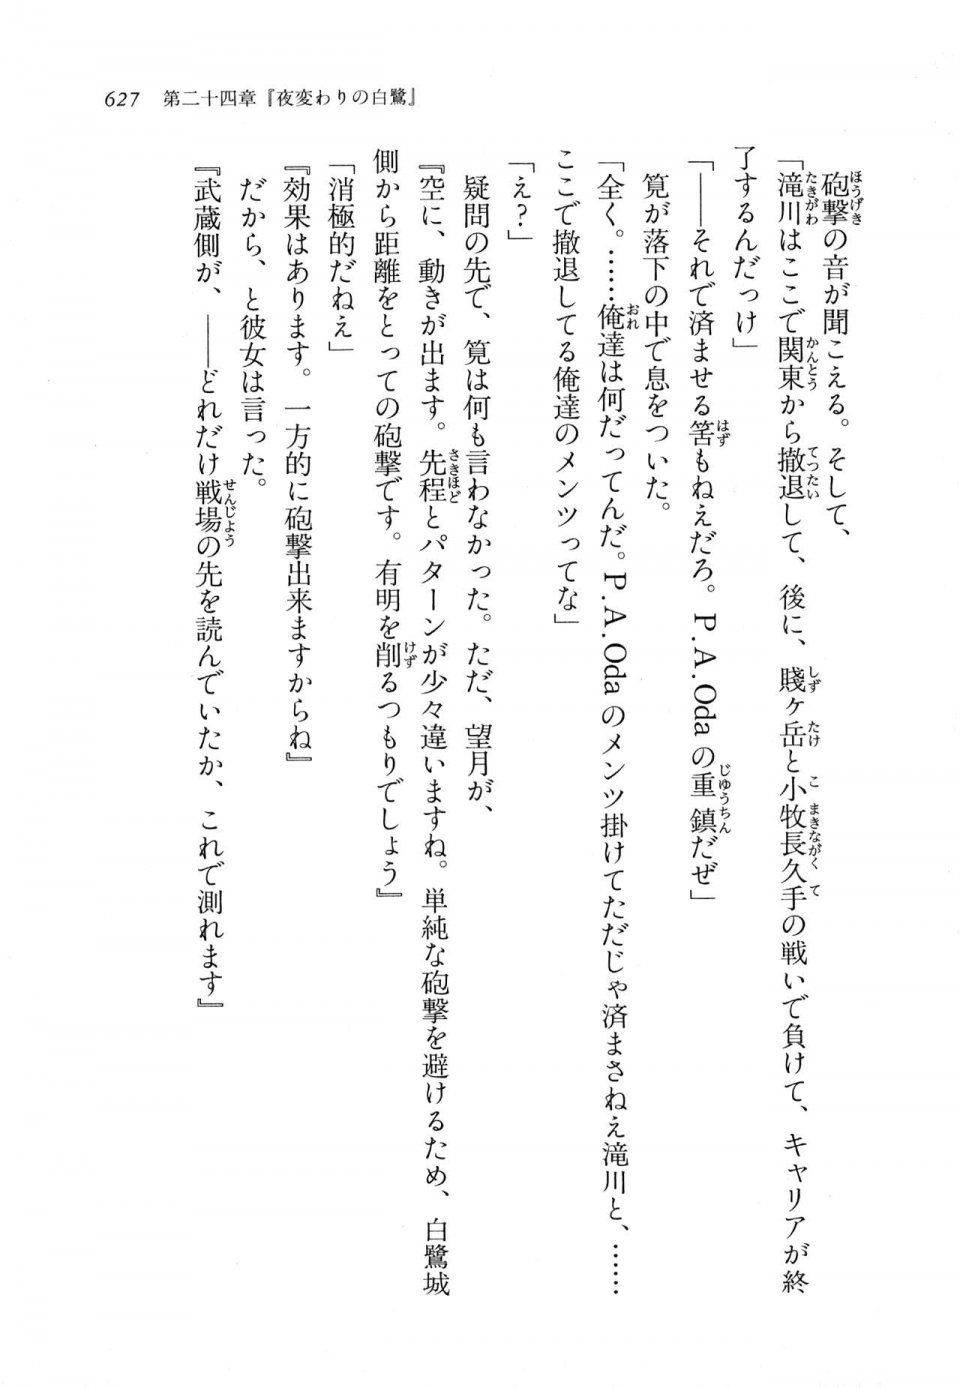 627　第二十四章『夜変わりの白鷺』
　砲撃の音が聞こえる。そして、
「滝川はここで関東から撤退して、後に、賤ヶ岳と小牧長久手の戦いで負けて、キャリアが終
了するんだっけ」
「――それで済ませる筈もねえだろ。P.A.Odaの重鎮だぜ」
　筧が落下の中で息をついた。
「全く。……俺達は何だってんだ。P.A.Odaのメンツ掛けてただじゃ済まさねえ滝川と、……
ここで撤退してる俺達のメンツってな」
「え？」
　疑問の先で、筧は何も言わなかった。ただ、望月が、
『空に、動きが出ます。先程とパターンが少々違いますね。単純な砲撃を避けるため、白鷺城
側から距離をとっての砲撃です。有明を削るつもりでしょう』
「消極的だねえ」
『効果はあります。一方的に砲撃出来ますからね』
　だから、と彼女は言った。
『武蔵側が、――どれだけ戦場の先を読んでいたか、これで測れます』